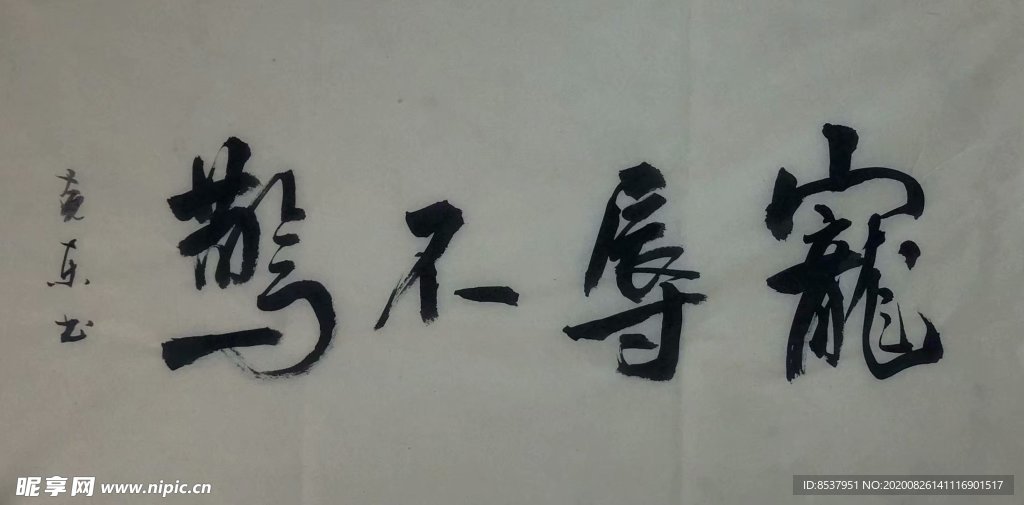 寵辱不驚
東書
昵享网 www.nipic.cn
ID:8537951 NO:20200826141116901517